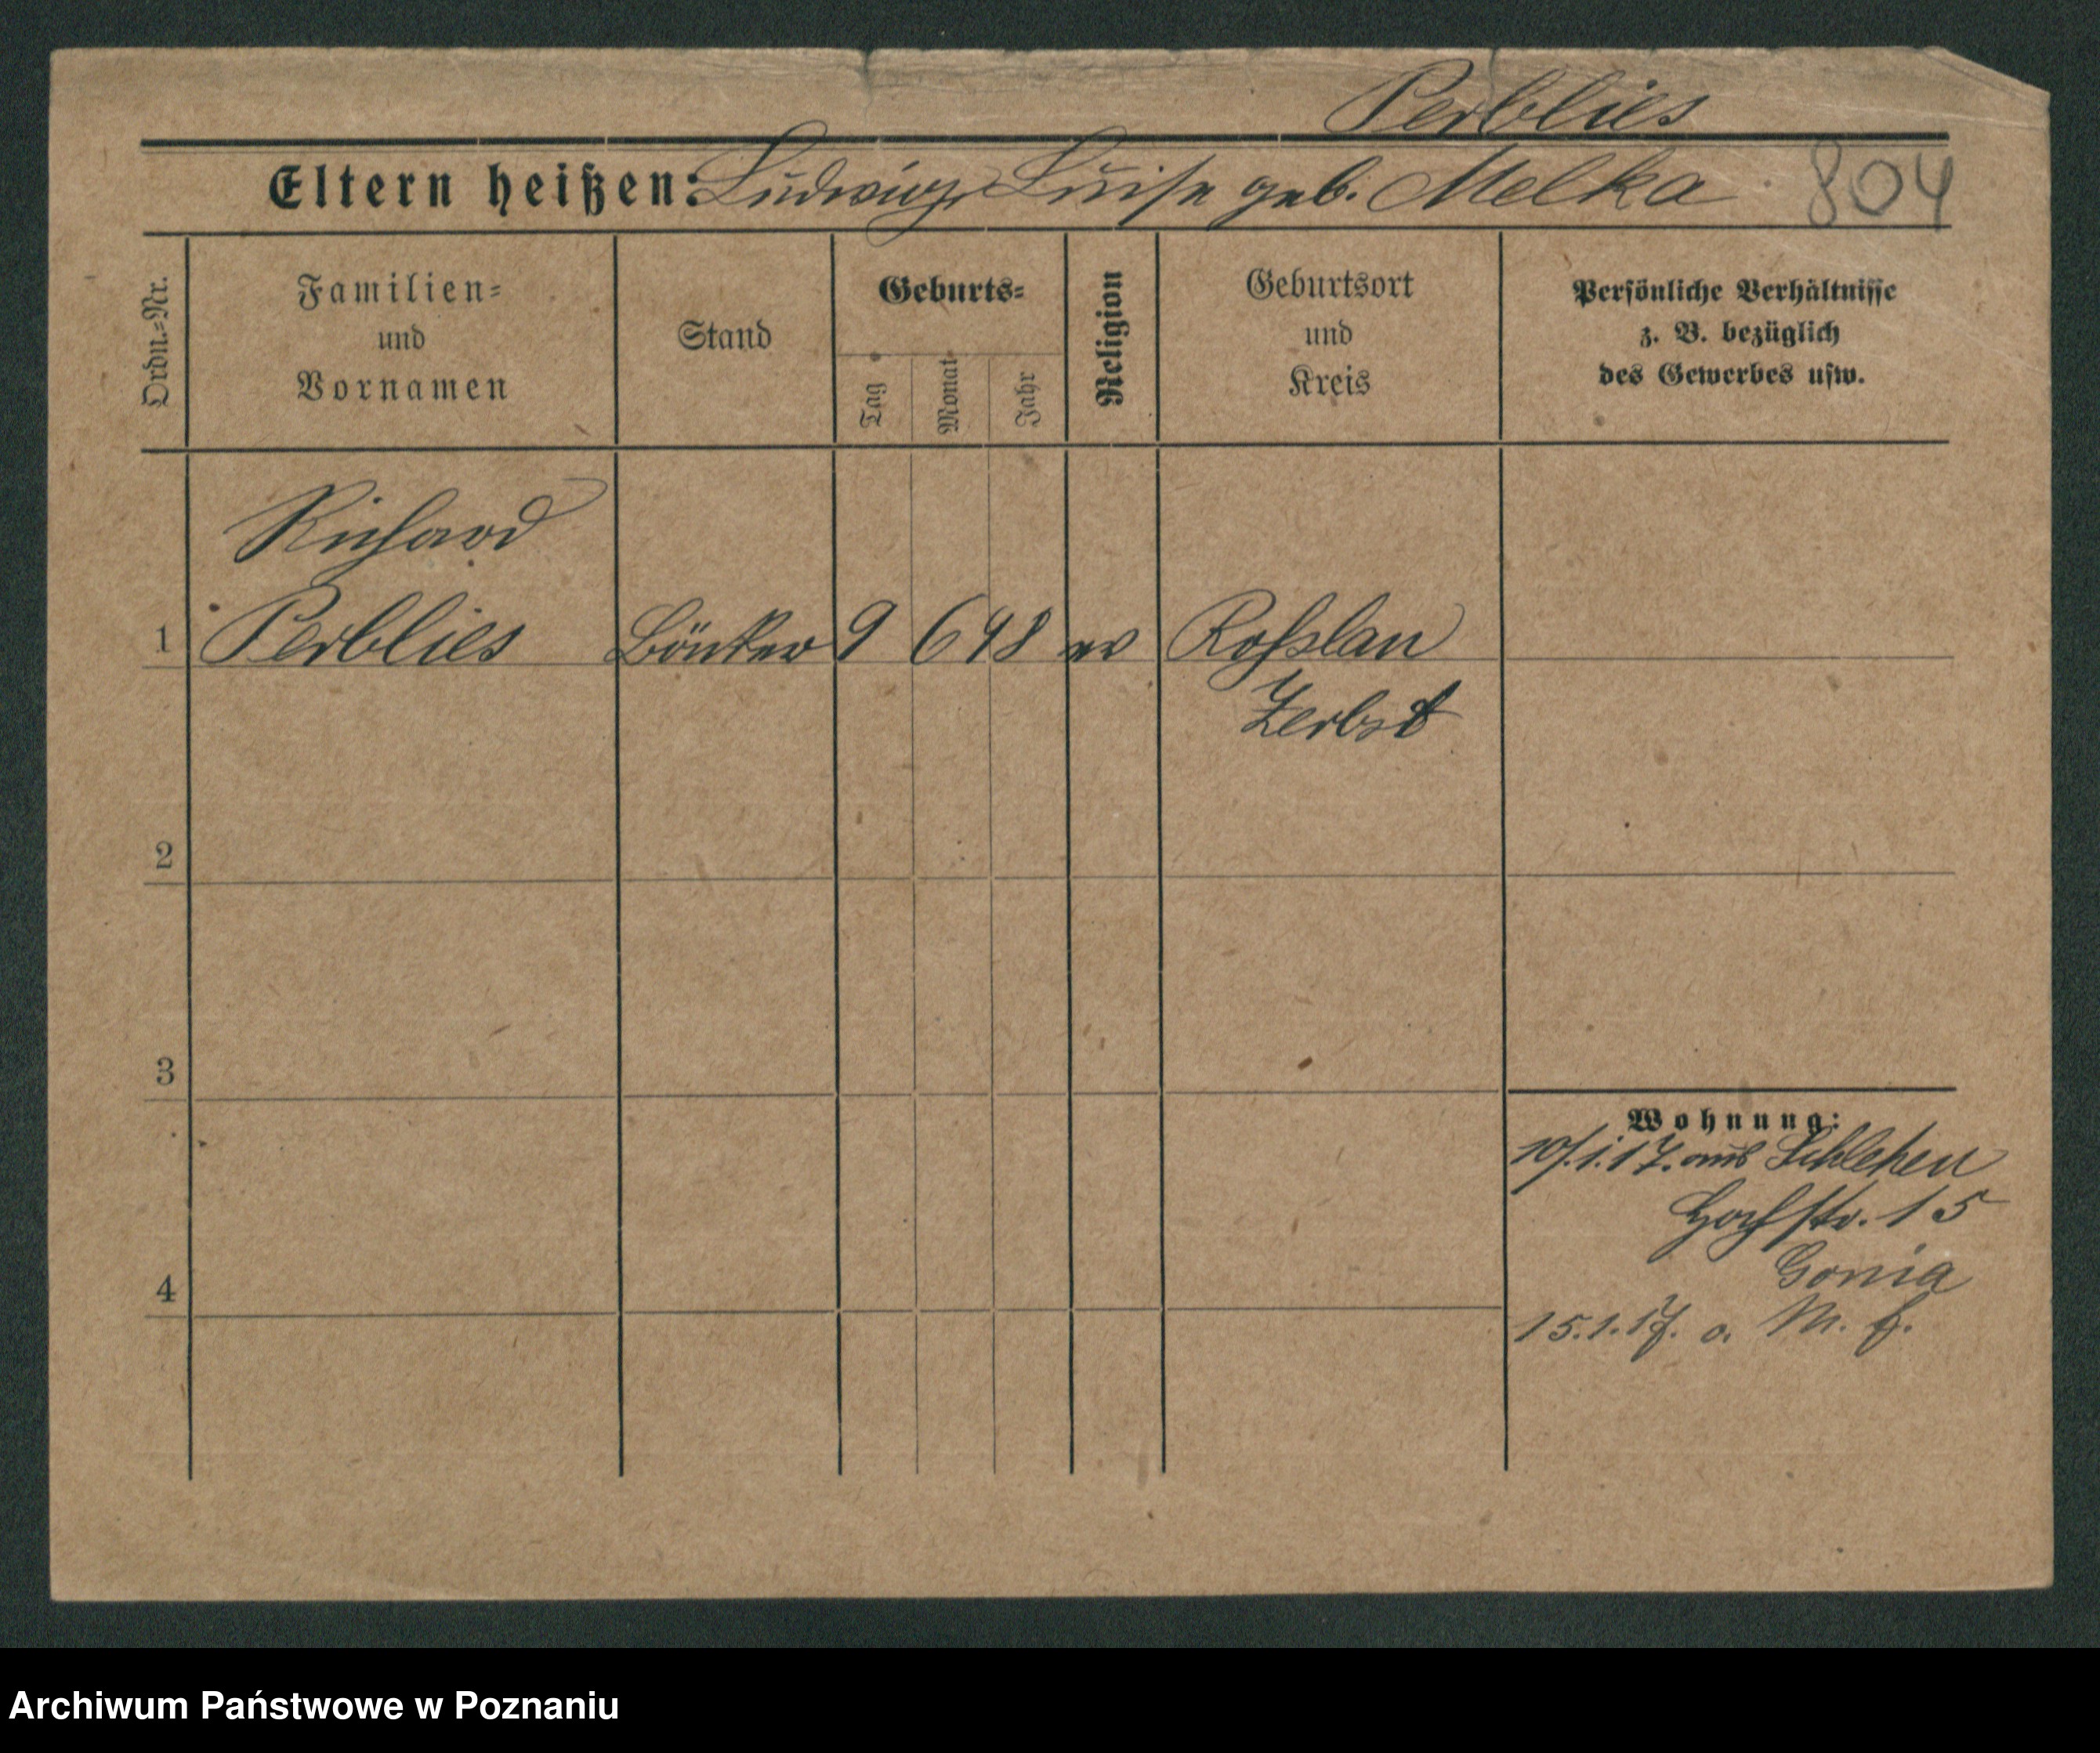 Perblies
Eltern heißen: Ludwig, Luise geb. Melka 804
Ordn.=Nr.
Familien=
und
Vornamen
Stand
Geburts=
Tag
Monat
Jahr
Religion
Geburtsort
und
Kreis
Persönliche Verhältnisse
z. B. bezüglich
des Gewerbes usw.
Richard
1 Perblies 9 6 98 ev Roßlau
Zerbst
2
3
4
Wohnung:
10/.1.17. aus Schlehen
Hochstr. 15
Gonia
15.1.17. a. M.
Archiwum Państwowe w Poznaniu